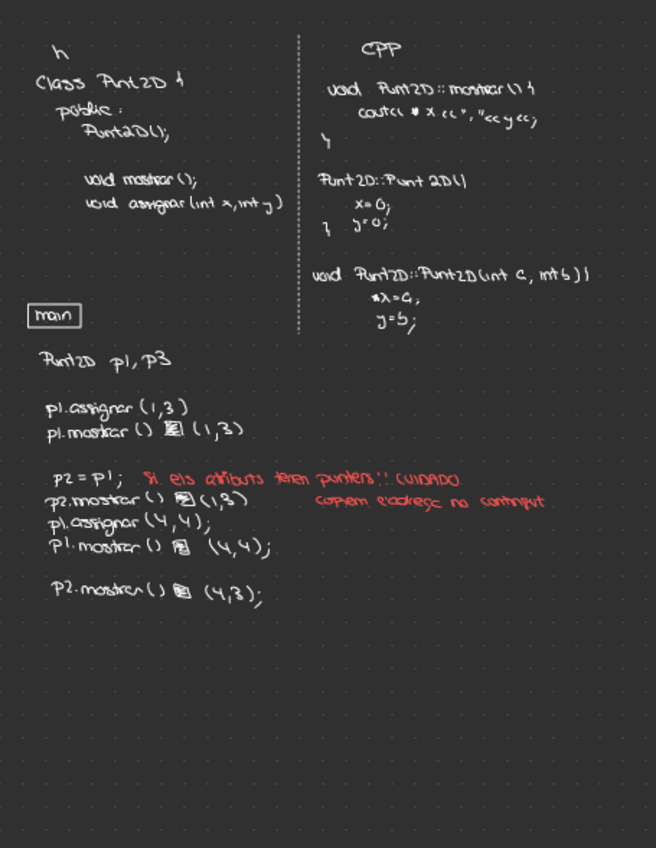 h
Class Punt2D {
public:
Punt2D();
void mostrar();
void assignar(int x, int y)
CPP
void Punt2D::mostrar() {
cout<< * x <<", "<< y <<;
}
Punt2D::Punt2D()
x=0;
y=0;
}
void Punt2D::Punt2D(int a, int b) {
*x=a;
y=b;
main
Punt2D p1, p3
p1.assignar (1,3)
p1.mostrar () (1,3)
p2 = p1; Si els atributs teren punters!! CUIDADO
p2.mostrar () (1,3) copiem l'adreça no contingut
p1.assignar (4,4);
p1.mostrar () (4,4);
p2.mostrar () (4,3);